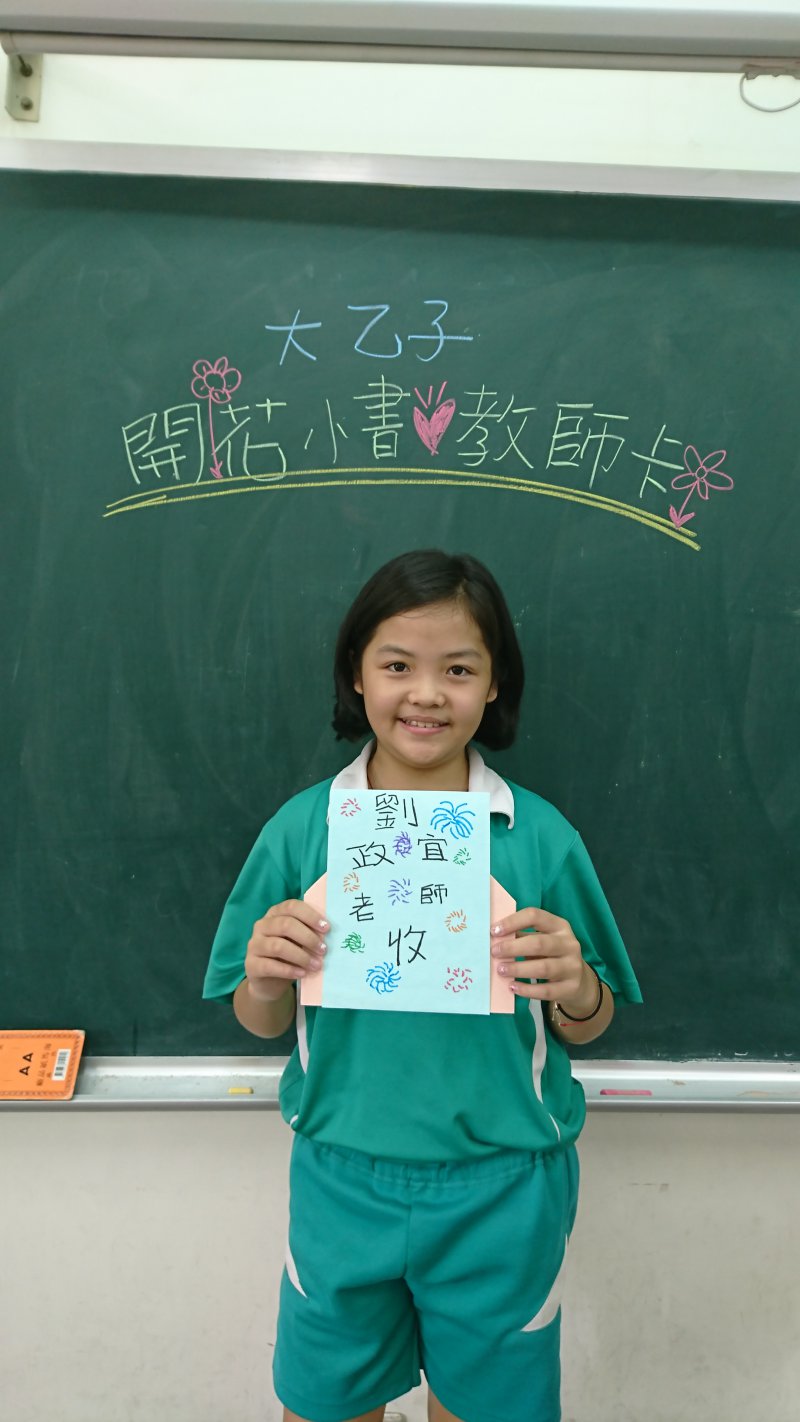 大乙子
開花小書教師卡
劉
政宜
老師
收
AA